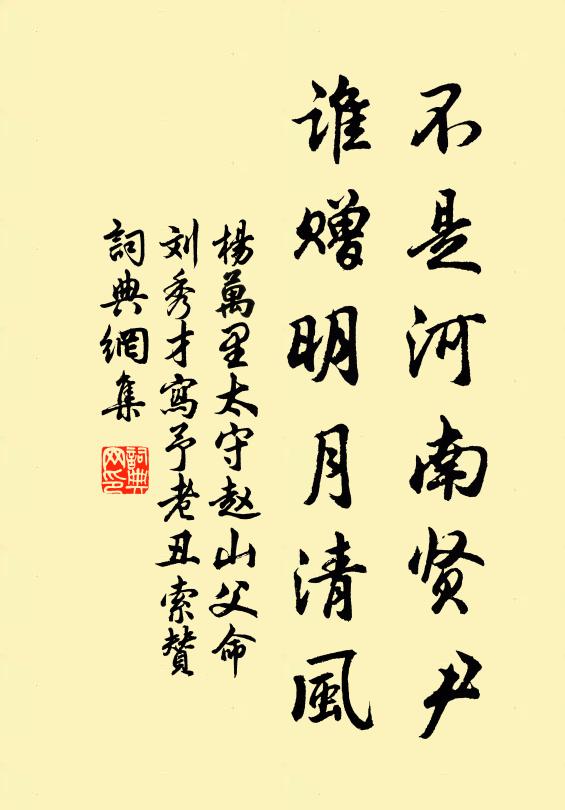 不是河南贤尹
谁赠明月清風
楊萬里太守赵山父命
刘秀才寫予老丑索贊
詞典網集
詞典網印